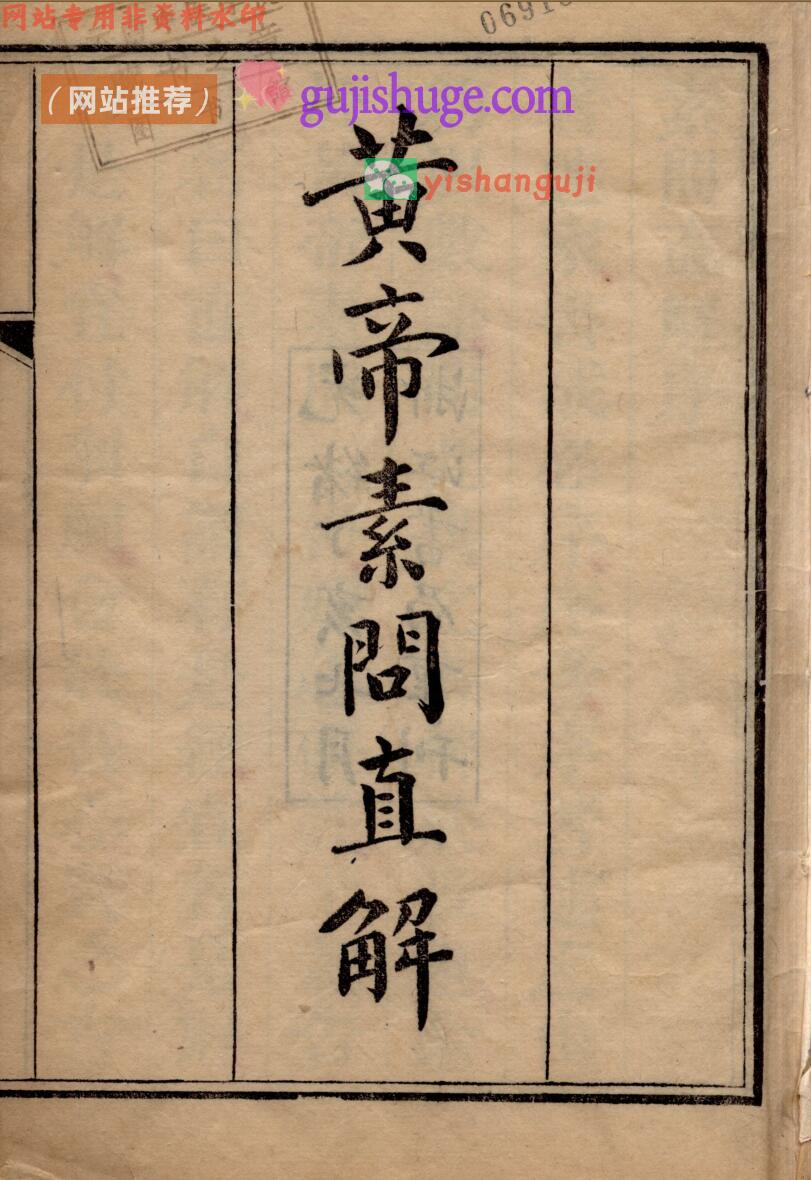 网站专用非资料水印
（网站推荐）
gujishuge.com
yishanguji
黄帝素問直解